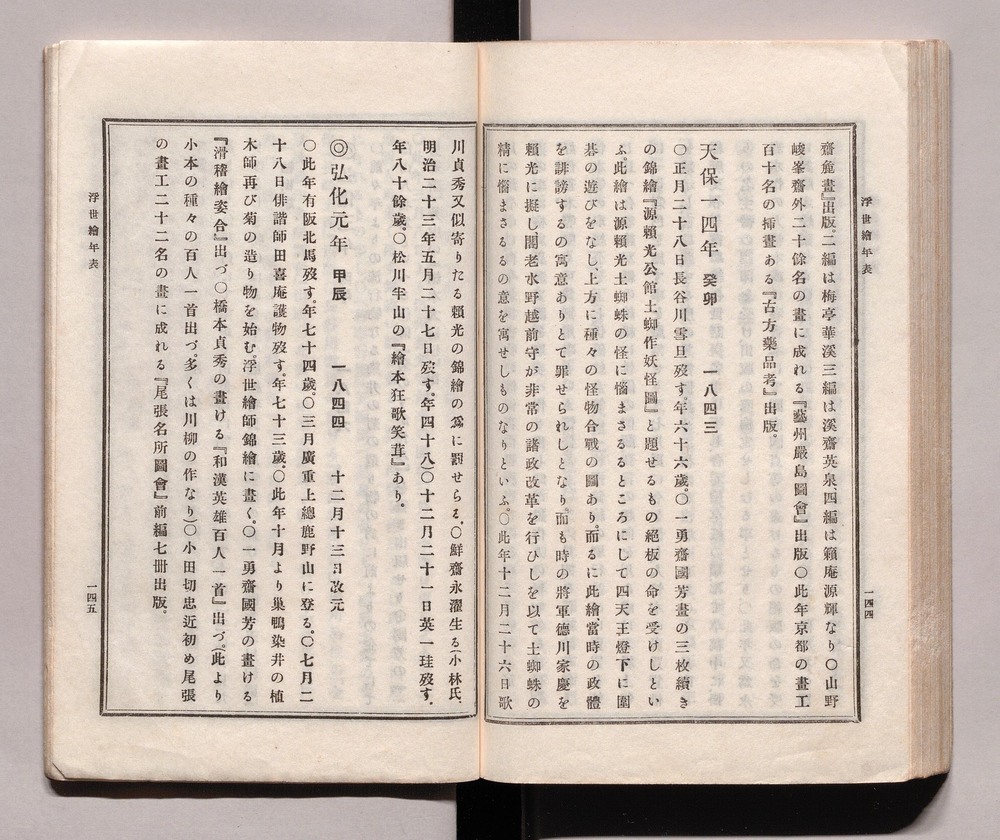 浮世繪年表
一四四
齋麁畫』出版。二編は梅亭華溪三編は溪齋英泉、四編は籟庵源輝なり〇山野
峻峯齋外二十餘名の畫に成れる『藝州嚴島圖會』出版〇此年京都の畫工
百十名の挿畫ある『古方藥品考』出版。
天保一四年 癸卯 一八四三
〇正月二十八日長谷川雪旦歿す。年六十六歲〇一勇齋國芳畫の三枚續き
の錦繪『源賴光公館土蜘作妖怪圖』と題せるもの絕板の命を受けしとい
ふ。此繪は源賴光土蜘蛛の怪に惱まさるるところにして四天王燈下に圍
碁の遊びをなし、上方に種々の怪物合戰の圖あり。而るに此繪當時の政體
を誹謗するの寓意ありとて罪せられしとなり。而も時の將軍德川家慶を
賴光に擬し、閣老水野越前守が非常の諸政改革を行ひしを以て土蜘蛛の
精に惱まさるるの意を寓せしものなりといふ。〇此年十二月二十六日歌
川貞秀又似寄りたる賴光の錦繪の爲に罰せらる。〇鮮齋永濯生る(小林氏、
明治二十三年五月二十七日歿す。年四十八)〇十二月二十一日英一珪歿す。
年八十餘歲。〇松川半山の『繪本狂歌笑茸』あり。
◎弘化元年 甲辰 一八四四 十二月十三日改元
〇此年有阪北馬歿す。年七十四歲。〇三月廣重上總鹿野山に登る。〇七月二
十八日俳諧師田喜庵護物歿す。年七十三歲。〇此年十月より巢鴨染井の植
木師再び菊の造り物を始む。浮世繪師錦繪に畫く。〇一勇齋國芳の畫ける
『滑稽繪姿合』出づ〇橋本貞秀の畫ける『和漢英雄百人一首』出づ。(此より
小本の種々の百人一首出づ。多くは川柳の作なり)〇小田切忠近初め尾張
の畫工二十二名の畫に成れる『尾張名所圖會』前編七冊出版。
浮世繪年表
一四五